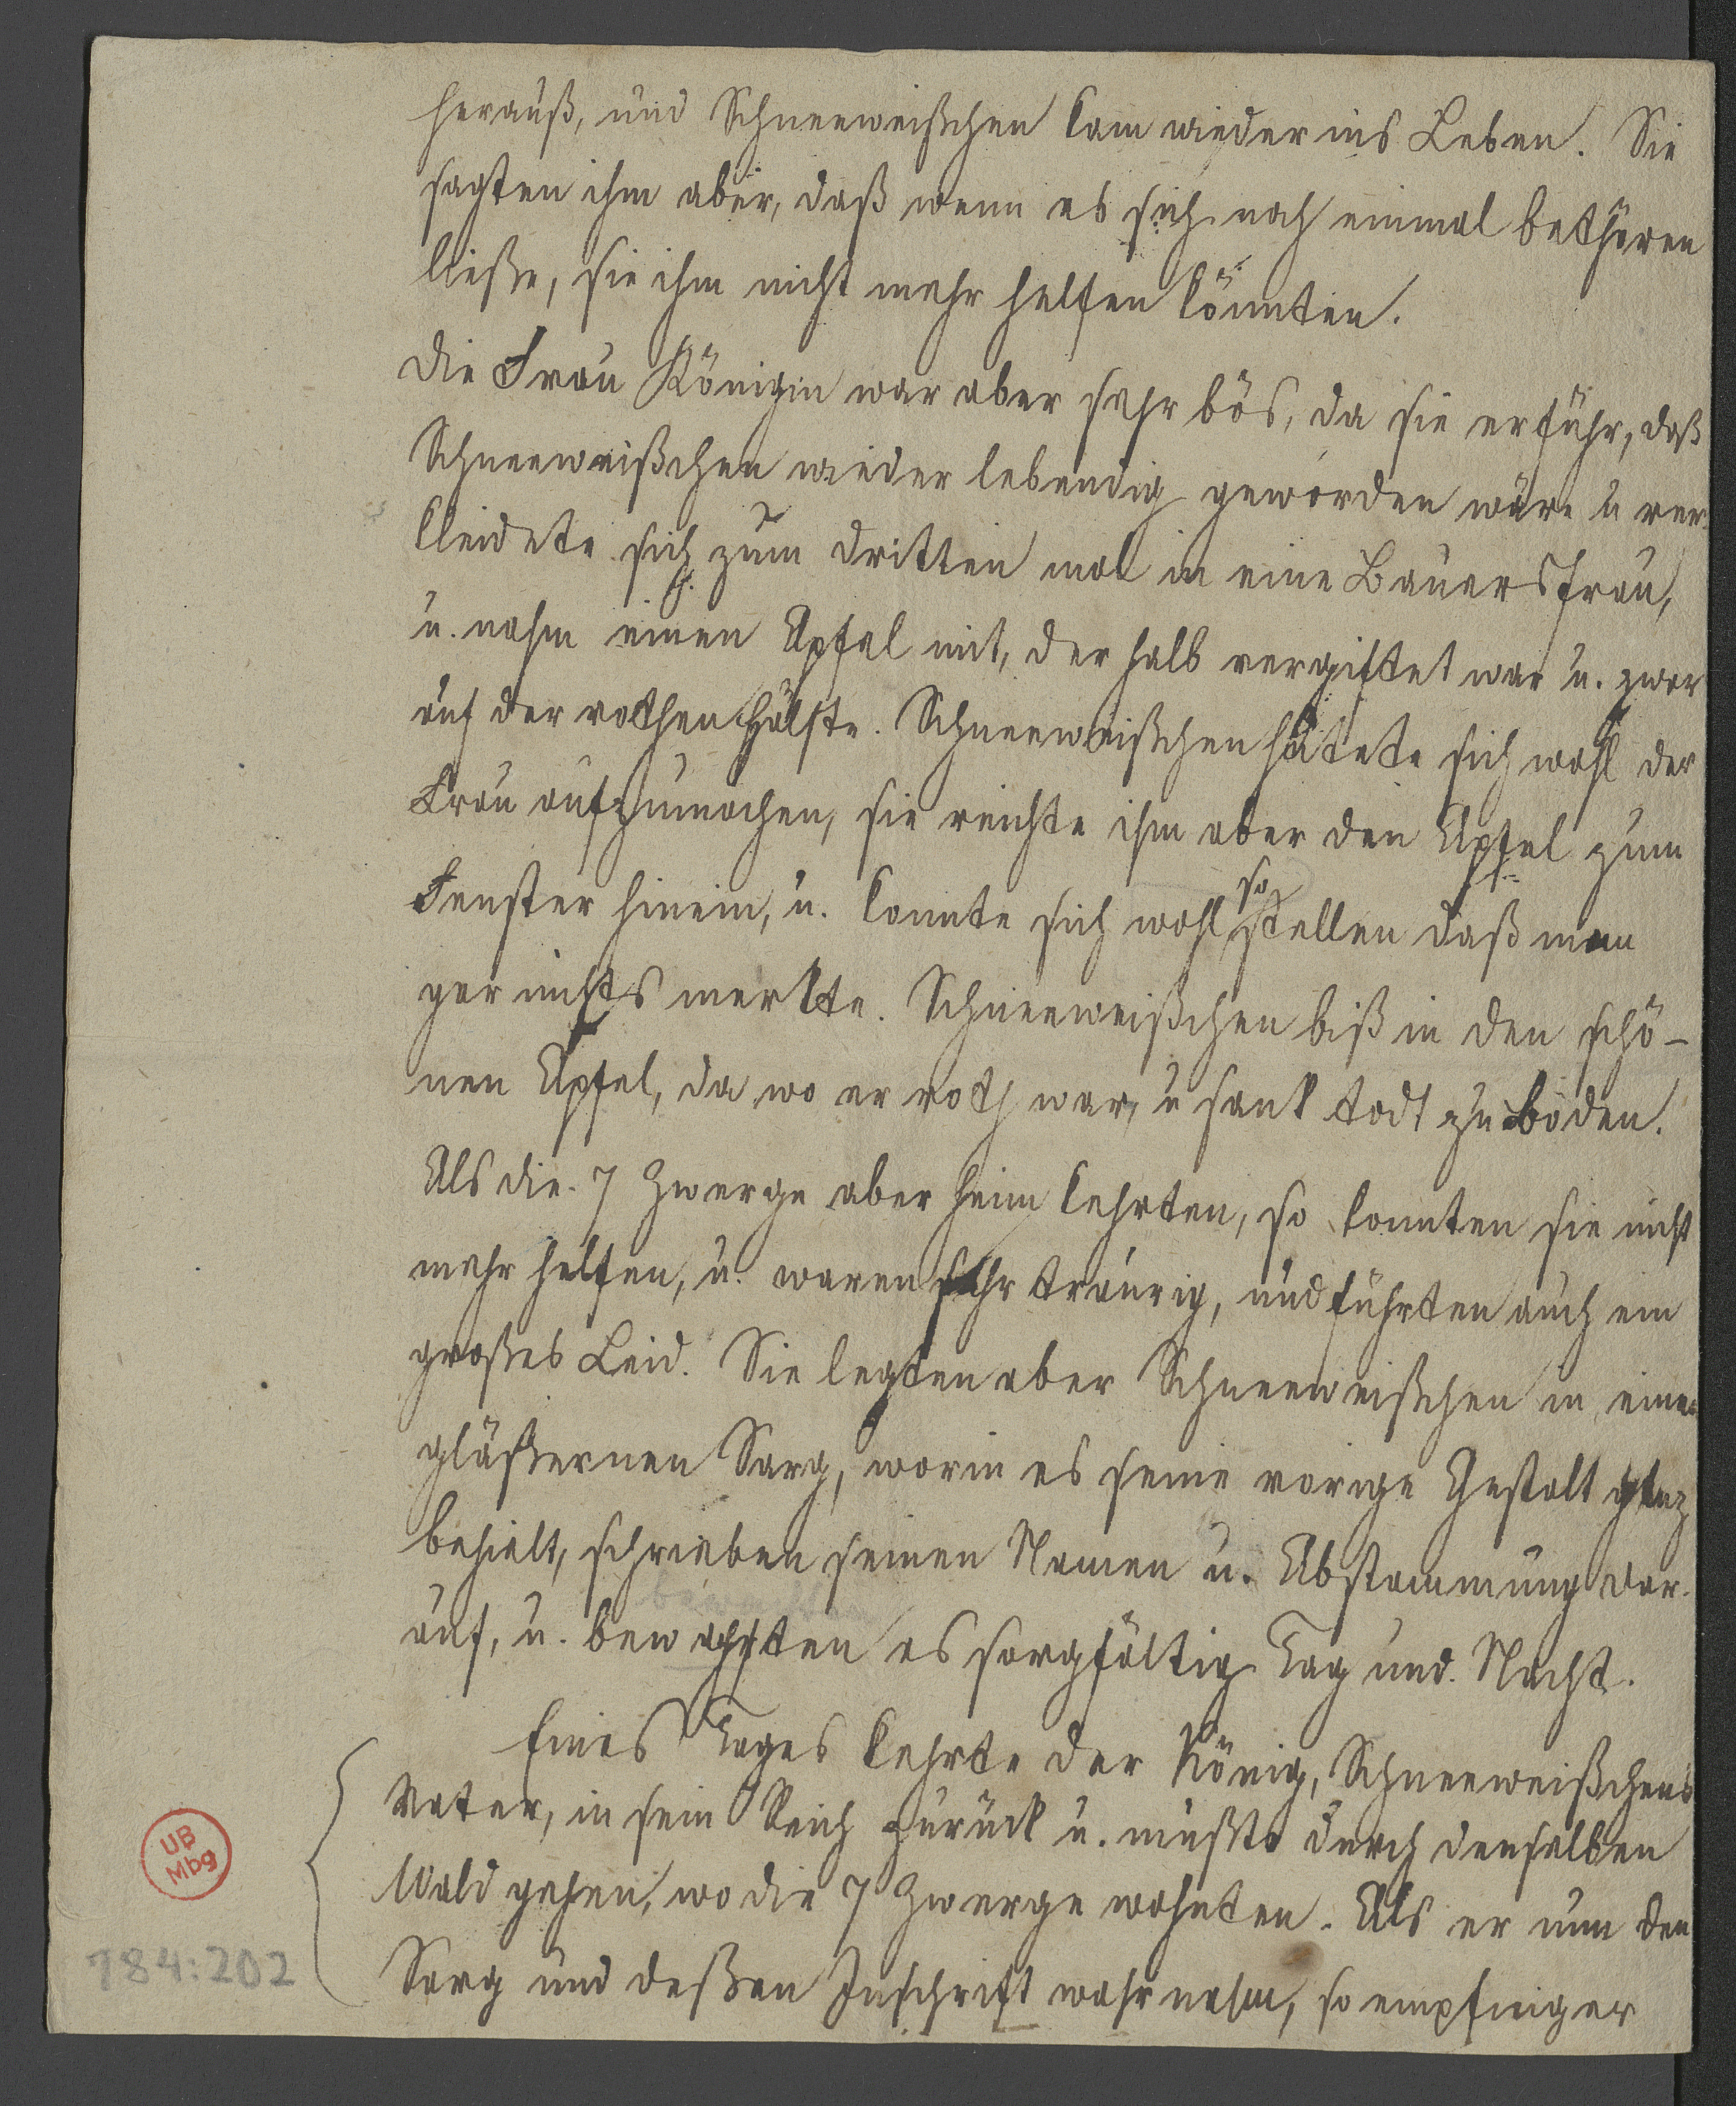 herauß, und Schneeweißchen kam wieder ins Leben. Sie
sagten ihm aber, daß wenn es sich noch einmal bethören
ließe, sie ihm nicht mehr helfen könnten.
Die Frau Königin war aber sehr bös, da sie erfuhr, daß
Schneeweißchen wieder lebendig geworden wäre u ver-
kleidete sich zum dritten mal in eine Bauersfrau,
u. nahm einen Apfel mit, der halb vergiftet war u. zwar
auf der rothen Hälfte. Schneeweißchen hütete sich wohl der
Frau aufzumachen, sie reichte ihm aber den Apfel zum
Fenster hinein, u. konnte sich wohl so stellen daß man
gar nichts merkte. Schneeweißchen biß in den schö-
nen Apfel, da wo er roth war, u sank todt zu boden.
Als die 7 Zwerge aber heim kehrten, so konnten sie nicht
mehr helfen, u. waren sehr traurig, und führten auch ein
großes Leid. Sie legten aber Schneeweißchen in einen
gläßernen Sarg, worin es seine vorige Gestalt ganz
behielt, schrieben seinen Namen u. Abstammung dar-
auf, u. bewachten es sorgfältig Tag und Nacht.
Eines Tages kehrte der König, Schneeweißchens
Vater, in sein Reich zurück u. mußte durch denselben
Wald gehen, wo die 7 Zwerge wohnten. Als er nun den
Sarg und deßen Inschrift wahrnahm, so empfing er
UB
Mbg
184:202